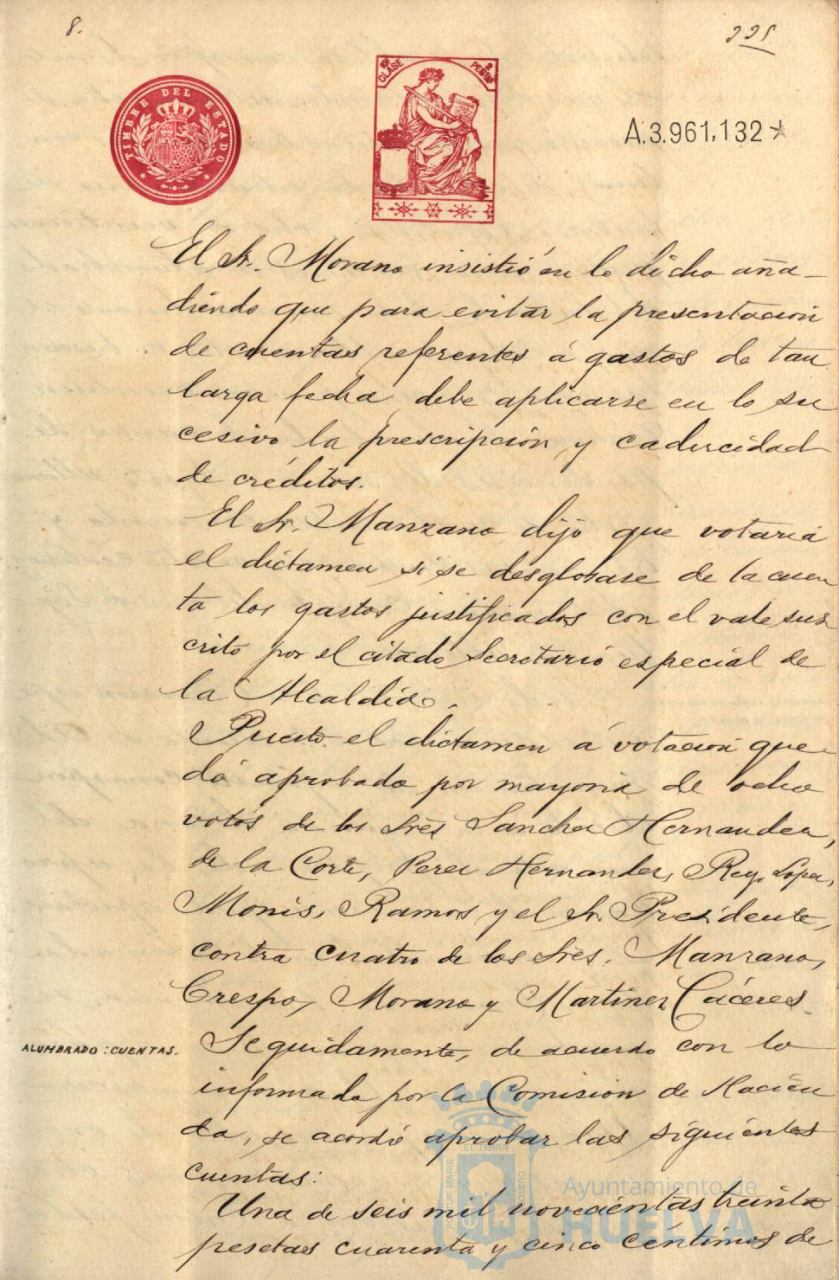 8.
225
TIMBRE DEL ESTADO
CLASE 2 PESETAS
A.3.961,132*
El Sr. Morano insistió en lo dicho aña-
diendo que para evitar la presentación
de cuentas referentes á gastos de tan
larga fecha debe aplicarse en lo su
cesivo la prescripción y caducidad
de créditos.
El Sr. Manzano dijo que votaria
el dictamen si se desglosase de la cuen
ta los gastos justificados con el vale sus
crito por el citado Secretario especial de
la Alcaldia.
Puesto el dictamen á votacion que-
dó aprobado por mayoria de ocho
votos de los Sres Sanchez Hernandez,
de la Corte, Perez Hernandez, Rey, Lopez,
Monis, Ramos y el Sr. Presidente,
contra cuatro de los Sres. Manzano,
Crespo, Morano y Martinez Cáceres.
ALUMBRADO: CUENTAS.
Seguidamente, de acuerdo con lo
informado por la Comision de Hacien
da, se acordó aprobar las siguientes
cuentas:
Una de seis mil novecientas treinta
pesetas cuarenta y cinco céntimos de
Ayuntamiento de
HUELVA